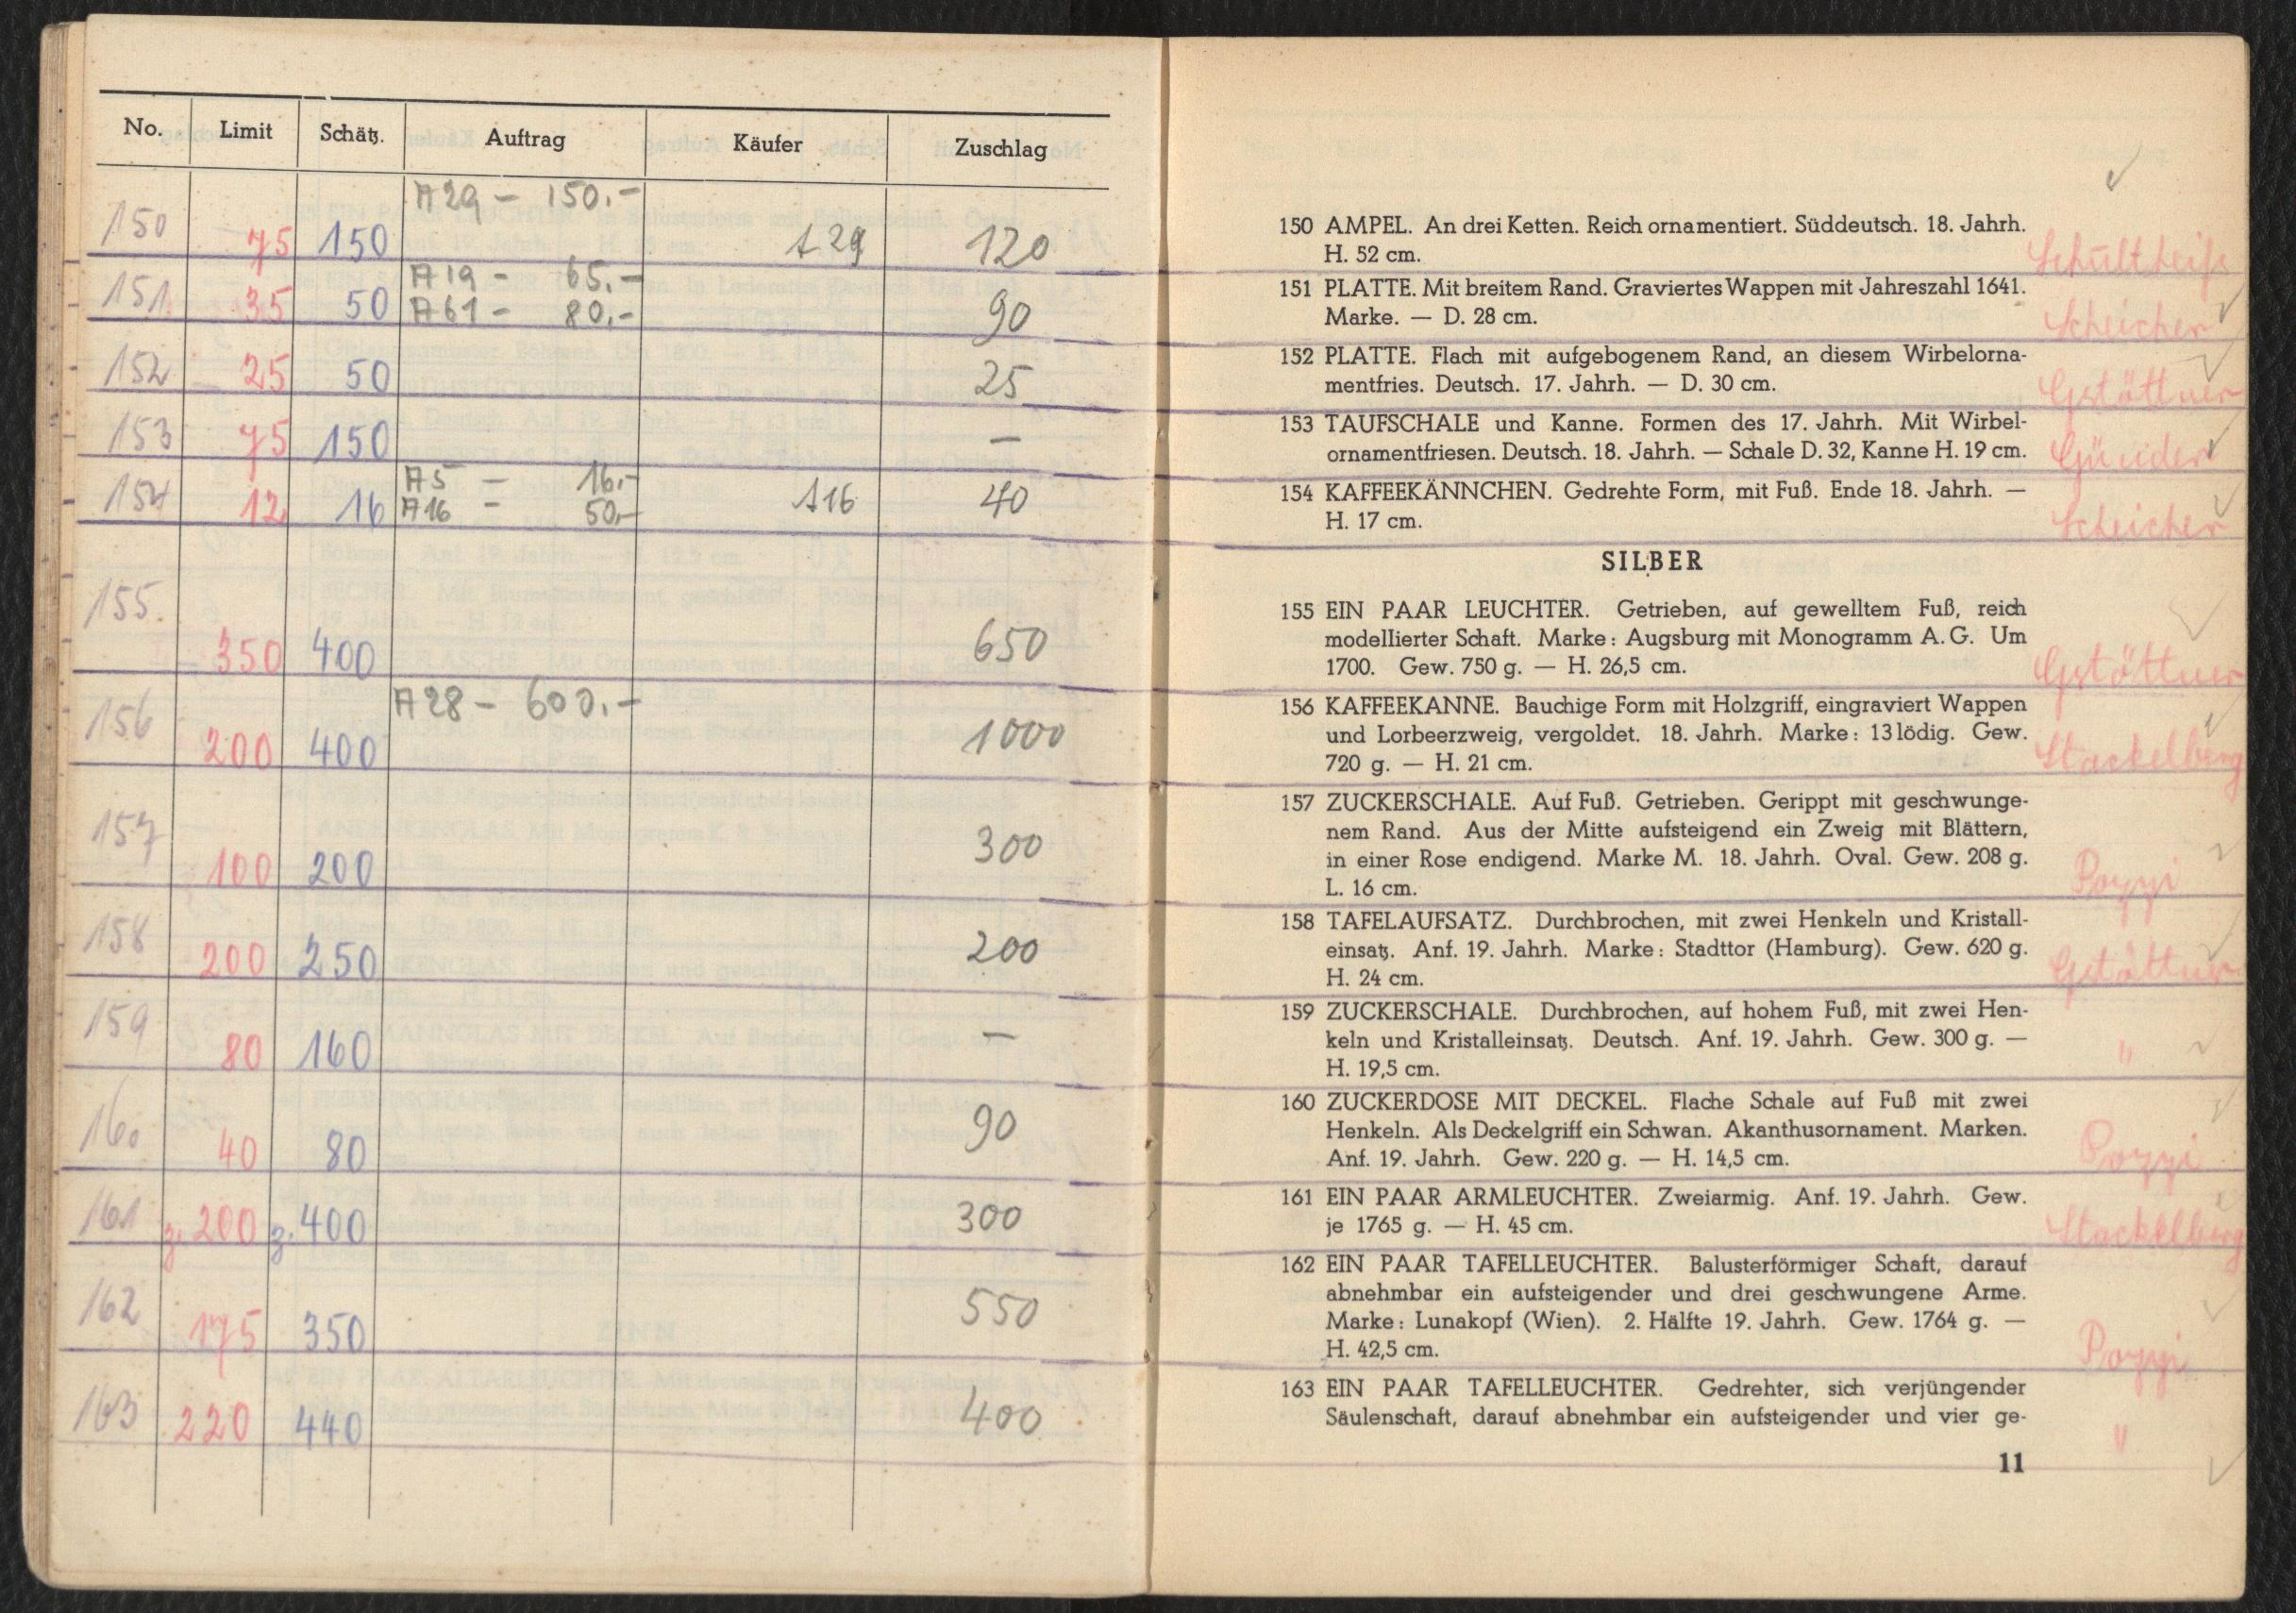 No. Limit Schätz. Auftrag Käufer Zuschlag
A29 – 150.–
150 75 150 A29 120
A19 – 65.–
151 35 50 A61 – 80.– 90
152 – 25 50 25
153 75 150 –
A5 – 16.–
154 12 16 A16 – 50.– A16 40
155. 350 400 650
A28 – 600.–
156 200 400 1000
157 100 200 300
158 200 250 200
159 80 160 –
160 40 80 90
161 z. 200 z. 400 300
162 175 350 550
163 220 440 400
150 AMPEL. An drei Ketten. Reich ornamentiert. Süddeutsch. 18. Jahrh.
H. 52 cm. Schultheiß
151 PLATTE. Mit breitem Rand. Graviertes Wappen mit Jahreszahl 1641.
Marke. — D. 28 cm. Scheicher
152 PLATTE. Flach mit aufgebogenem Rand, an diesem Wirbelorna-
mentfries. Deutsch. 17. Jahrh. — D. 30 cm. Gstöttner
153 TAUFSCHALE und Kanne. Formen des 17. Jahrh. Mit Wirbel-
ornamentfriesen. Deutsch. 18. Jahrh. — Schale D. 32, Kanne H. 19 cm. Günider
154 KAFFEEKÄNNCHEN. Gedrehte Form, mit Fuß. Ende 18. Jahrh. —
H. 17 cm. Scheicher
SILBER
155 EIN PAAR LEUCHTER. Getrieben, auf gewelltem Fuß, reich
modellierter Schaft. Marke: Augsburg mit Monogramm A. G. Um
1700. Gew. 750 g. — H. 26,5 cm. Gstöttner
156 KAFFEEKANNE. Bauchige Form mit Holzgriff, eingraviert Wappen
und Lorbeerzweig, vergoldet. 18. Jahrh. Marke: 13 lödig. Gew.
720 g. — H. 21 cm. Stackelberg
157 ZUCKERSCHALE. Auf Fuß. Getrieben. Gerippt mit geschwunge-
nem Rand. Aus der Mitte aufsteigend ein Zweig mit Blättern,
in einer Rose endigend. Marke M. 18. Jahrh. Oval. Gew. 208 g.
L. 16 cm. Pozzi
158 TAFELAUFSATZ. Durchbrochen, mit zwei Henkeln und Kristall-
einsatz. Anf. 19. Jahrh. Marke: Stadttor (Hamburg). Gew. 620 g.
H. 24 cm. Gstöttner
159 ZUCKERSCHALE. Durchbrochen, auf hohem Fuß, mit zwei Hen-
keln und Kristalleinsatz. Deutsch. Anf. 19. Jahrh. Gew. 300 g. —
H. 19,5 cm. "
160 ZUCKERDOSE MIT DECKEL. Flache Schale auf Fuß mit zwei
Henkeln. Als Deckelgriff ein Schwan. Akanthusornament. Marken.
Anf. 19. Jahrh. Gew. 220 g. — H. 14,5 cm. Pozzi
161 EIN PAAR ARMLEUCHTER. Zweiarmig. Anf. 19. Jahrh. Gew.
je 1765 g. — H. 45 cm. Stackelberg
162 EIN PAAR TAFELLEUCHTER. Balusterförmiger Schaft, darauf
abnehmbar ein aufsteigender und drei geschwungene Arme.
Marke: Lunakopf (Wien). 2. Hälfte 19. Jahrh. Gew. 1764 g. —
H. 42,5 cm. Pozzi
163 EIN PAAR TAFELLEUCHTER. Gedrehter, sich verjüngender
Säulenschaft, darauf abnehmbar ein aufsteigender und vier ge- "
11